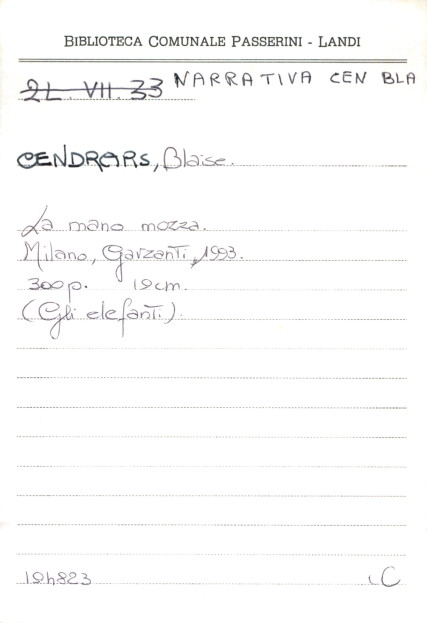 BIBLIOTECA COMUNALE PASSERINI - LANDI
2L. VII. 33 NARRATIVA CEN BLA
CENDRARS, Blaise.
La mano mozza.
Milano, Garzanti, 1993.
300p. 19cm.
(Gli elefanti).
C